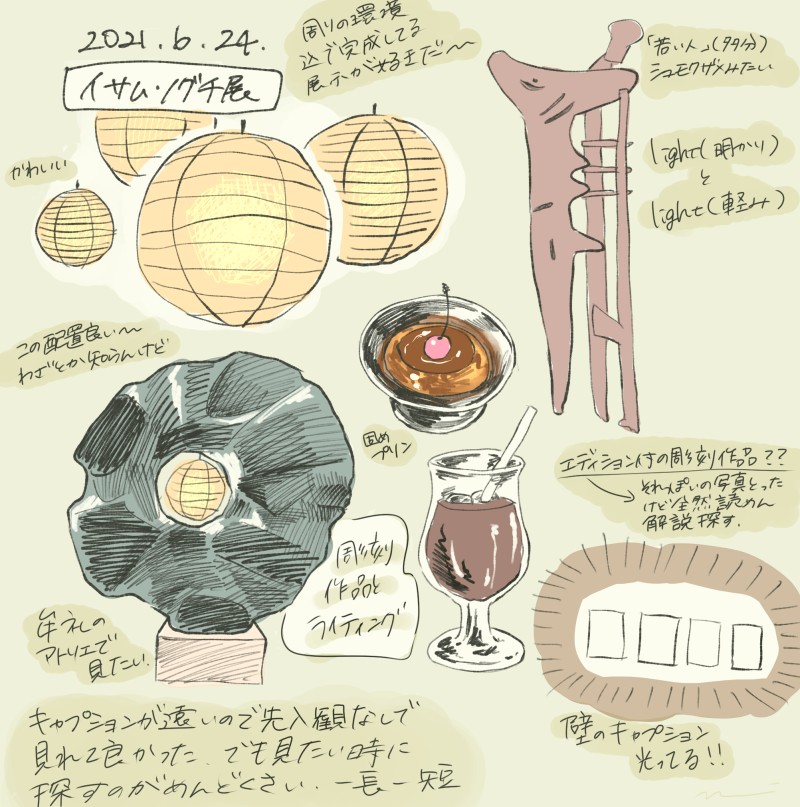 2021.6.24.
イサム・ノグチ展
周りの環境
込で完成してる
展示が好きだ〜
「若い人」(多分)
シュモクザメみたい
かわいい
light(明かり)
と
light(軽み)
この配置良い〜
わざとか知らんけど
固め
プリン
エディション付の彫刻作品??
それっぽいの写真とった
けど全然読めん
解説探す.
彫刻
作品と
ライティング
牟礼の
アトリエで
見たい.
キャプションが遠いので先入観なしで
見れて良かった.でも見たい時に
探すのがめんどくさい.一長一短
壁のキャプション
光ってる!!